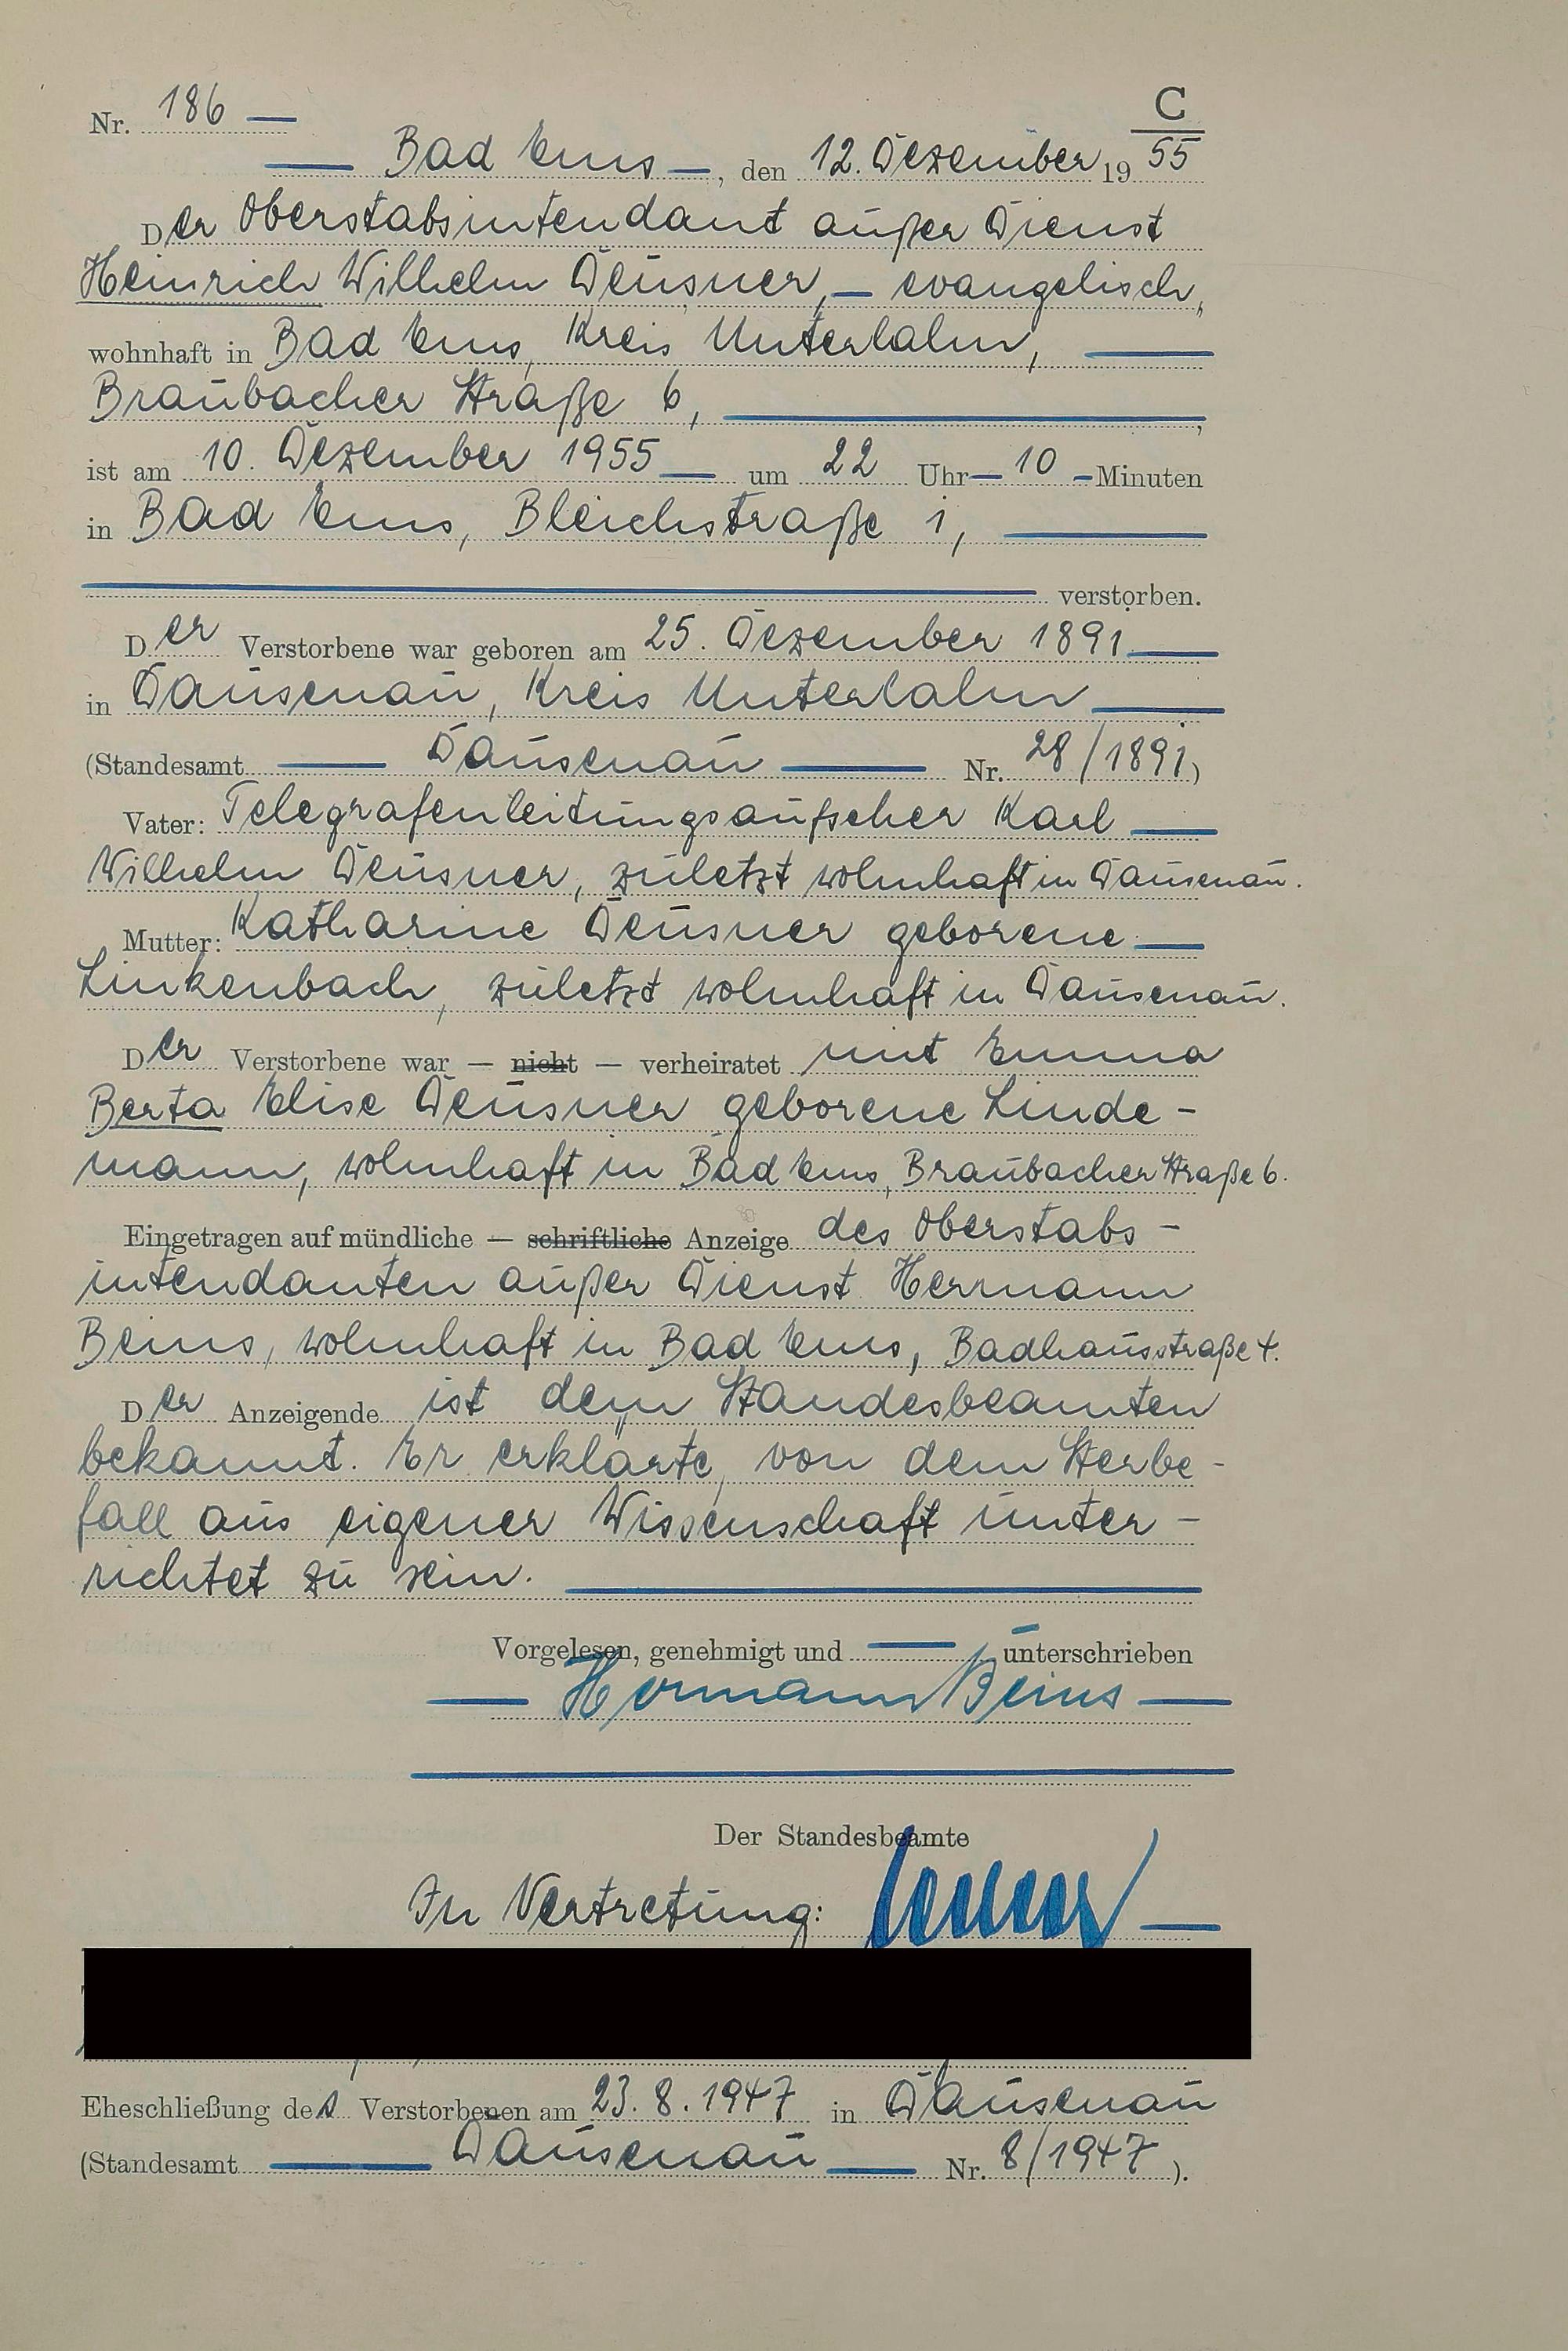 C
Nr. 186 —
— Bad Ems —, den 12. Dezember 19 55
Der Oberstabsintendant außer Dienst
Heinrich Wilhelm Deusner, — evangelisch,
wohnhaft in Bad Ems, Kreis Unterlahn, —
Braubacher Straße 6, —,
ist am 10. Dezember 1955 — um 22 Uhr — 10 — Minuten
in Bad Ems, Bleichstraße 1, —
— verstorben.
Der Verstorbene war geboren am 25. Dezember 1891 —
in Dausenau, Kreis Unterlahn —
(Standesamt — Dausenau — Nr. 28/1891)
Vater: Telegrafenleitungsaufseher Karl —
Wilhelm Deusner, zuletzt wohnhaft in Dausenau.
Mutter: Katharine Deusner geborene —
Linkenbach, zuletzt wohnhaft in Dausenau.
Der Verstorbene war — nicht — verheiratet mit Emma
Berta Elise Deusner geborene Linde-
mann, wohnhaft in Bad Ems, Braubacher Straße 6.
Eingetragen auf mündliche — schriftliche Anzeige des Oberstabs-
intendanten außer Dienst Hermann
Beins, wohnhaft in Bad Ems, Badhausstraße 4.
Der Anzeigende ist dem Standesbeamten
bekannt. Er erklärte, von dem Sterbe-
fall aus eigener Wissenschaft unter-
richtet zu sein. —
Vorgelesen, genehmigt und — unterschrieben
— Hermann Beins —
Der Standesbeamte
In Vertretung:
Eheschließung des Verstorbenen am 23.8.1947 in Dausenau
(Standesamt — Dausenau — Nr. 8/1947).